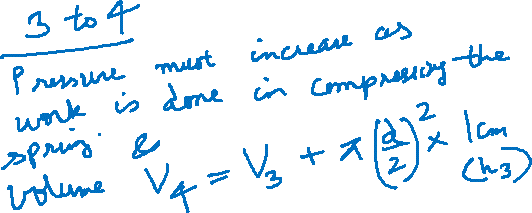 3 to 4
Pressure must increase as
work is done in compressing the
spring. &
volume V₄ = V₃ + π(d/2)² × 1cm
(h3)